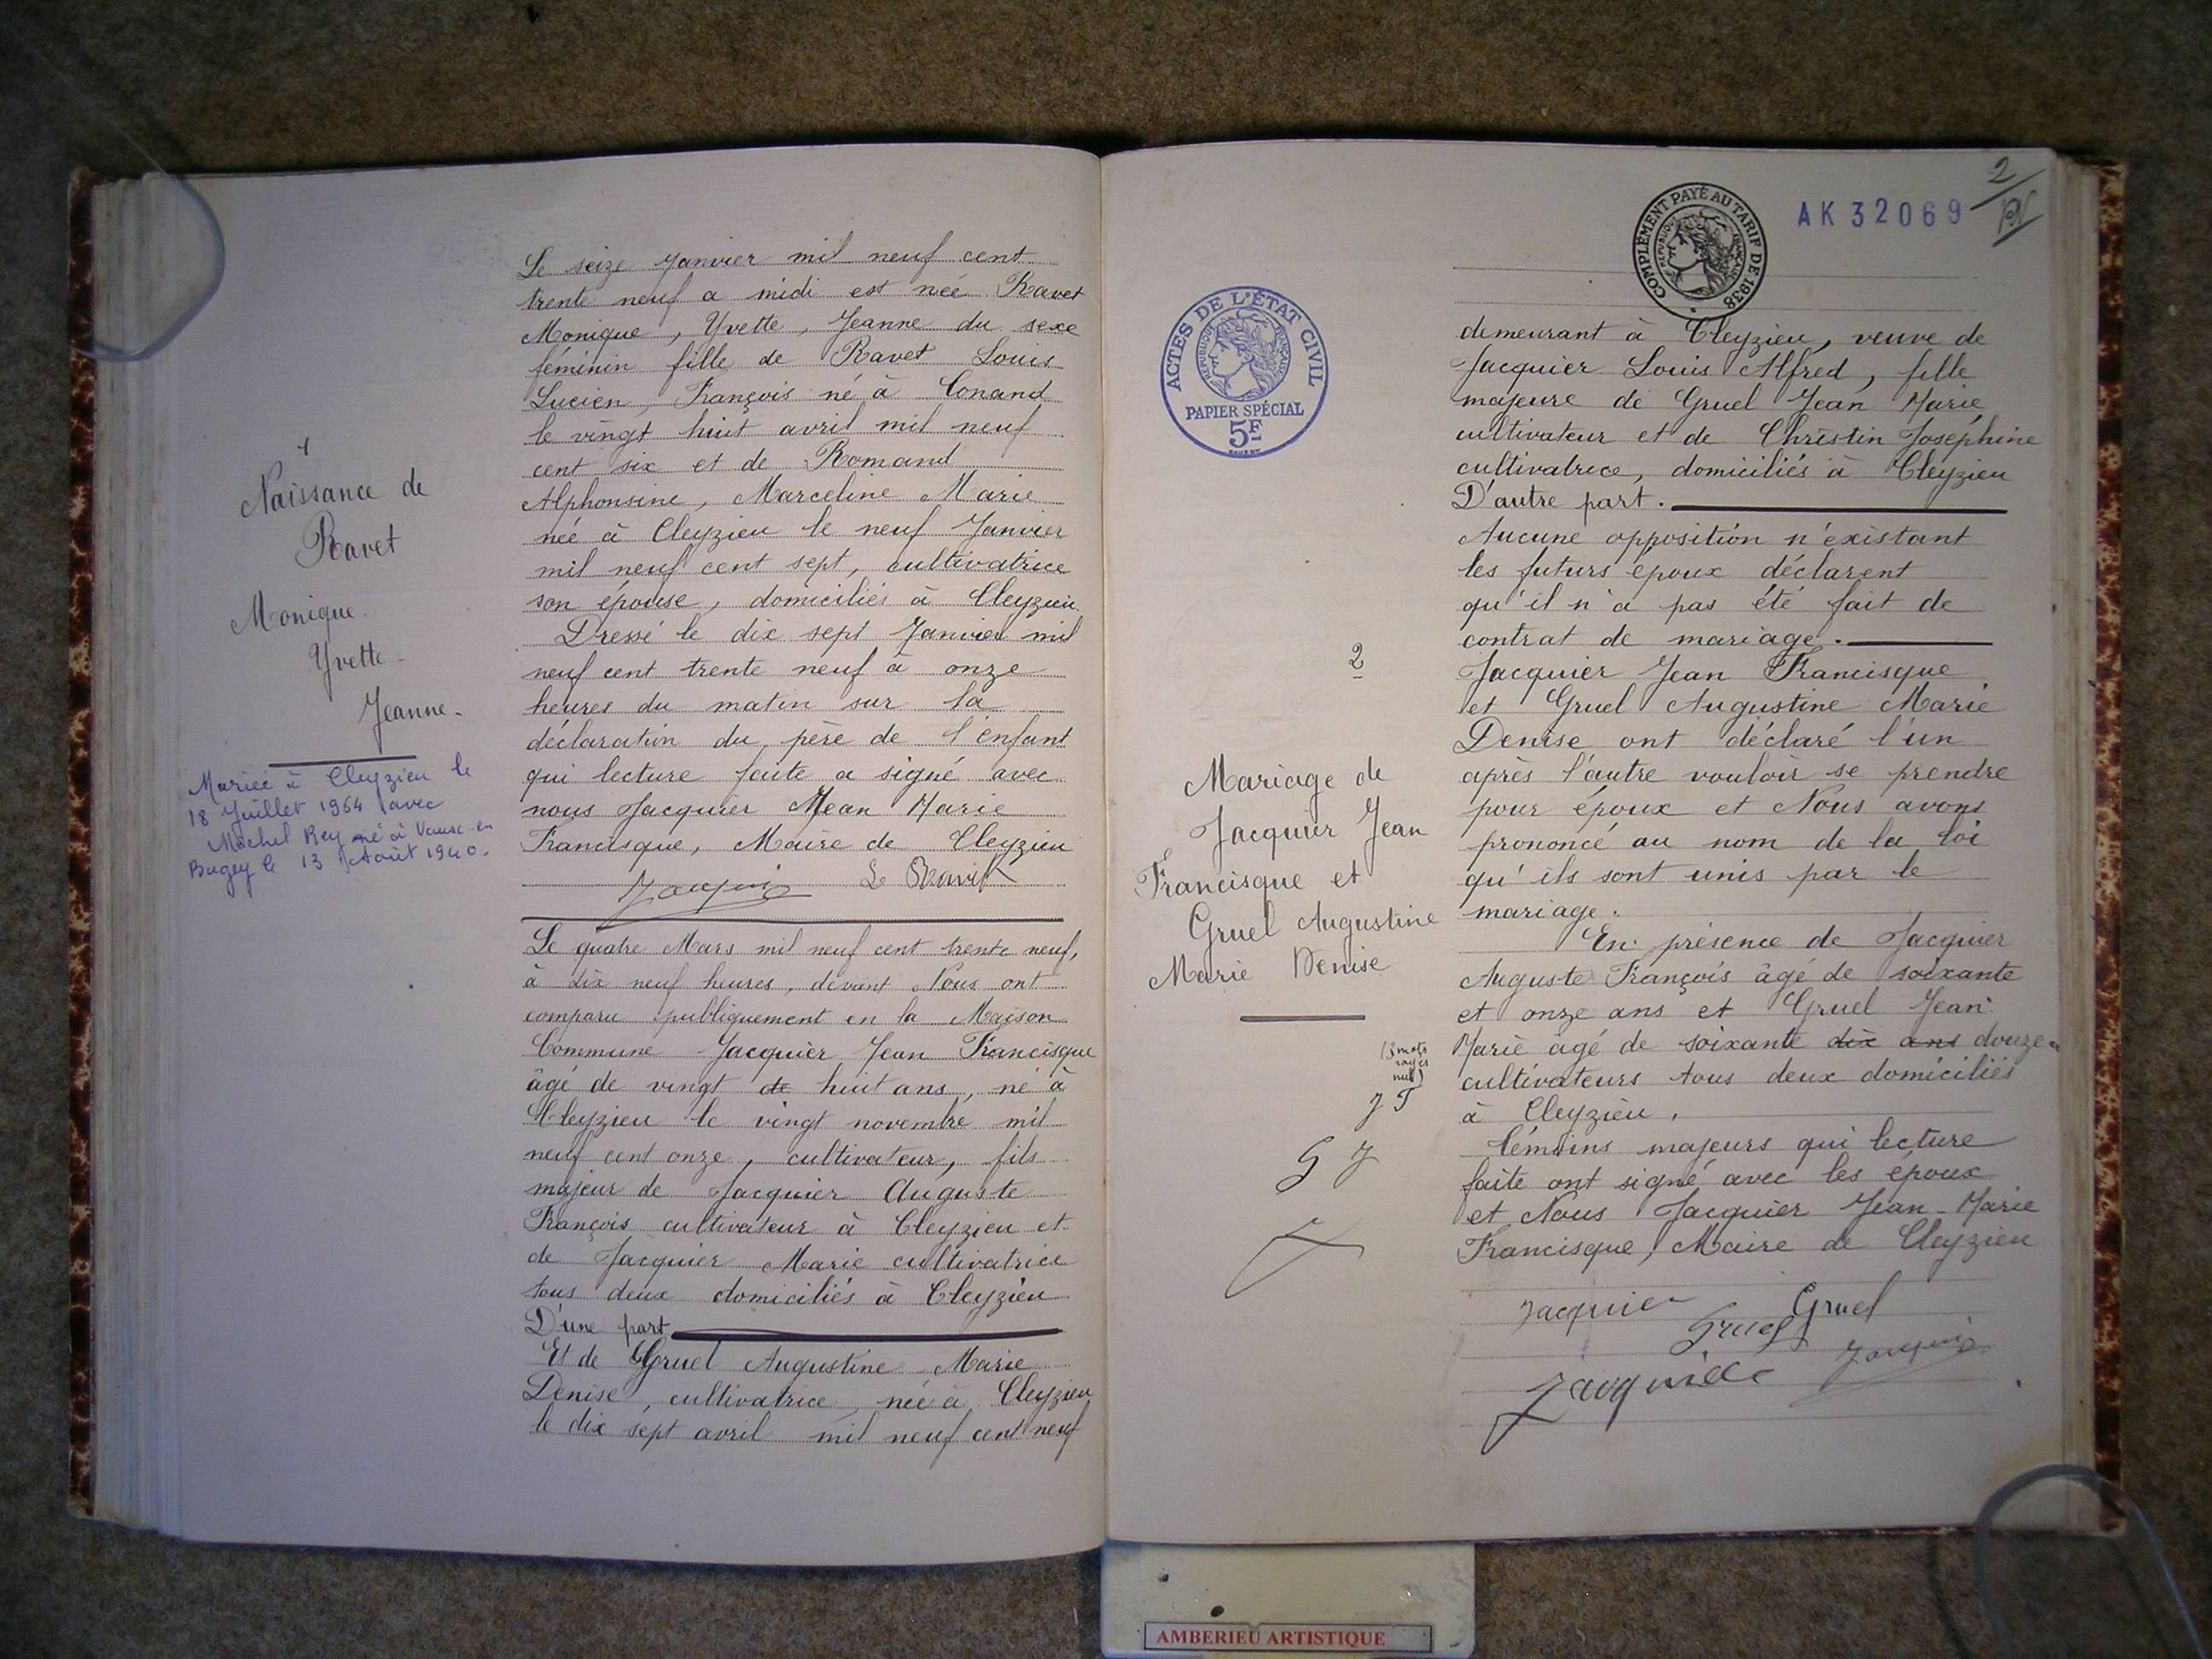 1
Naissance de
Ravet
Monique
Yvette
Jeanne
Mariée à Cleyzieu le
18 Juillet 1964 avec
Michel Rey né à Vaux en
Bugey le 13 Août 1940.
Le seize Janvier mil neuf cent
trente neuf a midi est née Ravet
Monique, Yvette, Jeanne du sexe
féminin fille de Ravet Louis
Lucien, François né à Conand
le vingt huit avril mil neuf
cent six et de Romand
Alphonsine, Marceline Marie
née à Cleyzieu le neuf Janvier
mil neuf cent sept, cultivatrice
son épouse, domiciliés à Cleyzieu
Dressé le dix sept Janvier mil
neuf cent trente neuf à onze
heures du matin sur la
déclaration du père de l'enfant
qui lecture faite a signé avec
nous Jacquier Jean Marie
Francisque, Maire de Cleyzieu
Jacquier L Ravet
Le quatre Mars mil neuf cent trente neuf,
à dix neuf heures, devant Nous ont
comparu publiquement en la Maison
Commune Jacquier Jean Francisque
âgé de vingt de huit ans, né à
Cleyzieu le vingt novembre mil
neuf cent onze, cultivateur, fils
majeur de Jacquier Auguste
François cultivateur à Cleyzieu et
de Jacquier Marie cultivatrice
tous deux domiciliés à Cleyzieu
D'une part
Et de Gruel Augustine Marie
Denise, cultivatrice, née à Cleyzieu
le dix sept avril mil neuf cent neuf
ACTES DE L'ÉTAT CIVIL
RÉPUBLIQUE FRANÇAISE
PAPIER SPÉCIAL
5F
2
Mariage de
Jacquier Jean
Francisque et
Gruel Augustine
Marie Denise
(3 mots
rayés
nuls)
G J
COMPLÉMENT PAYÉ AU TARIF DE 1938
RÉPUBLIQUE FRANÇAISE
AK 32069
2
demeurant à Cleyzieu, veuve de
Jacquier Louis Alfred, fille
majeure de Gruel Jean Marie
cultivateur et de Christin Joséphine
cultivatrice, domiciliés à Cleyzieu
D'autre part.
Aucune opposition n'éxistant
les futurs époux déclarent
qu'il n'a pas été fait de
contrat de mariage.
Jacquier Jean Francisque
et Gruel Augustine Marie
Denise ont déclaré l'un
après l'autre vouloir se prendre
pour époux et Nous avons
prononcé au nom de la loi
qu'ils sont unis par le
mariage.
En présence de Jacquier
Auguste François âgé de soixante
et onze ans et Gruel Jean
Marie âgé de soixante dix ans douze
cultivateurs tous deux domiciliés
à Cleyzieu.
témoins majeurs qui lecture
faite ont signé avec les époux
et Nous Jacquier Jean-Marie
Francisque, Maire de Cleyzieu
Jacquier Gruel
Gruel
Jacquier
AMBERIEU ARTISTIQUE